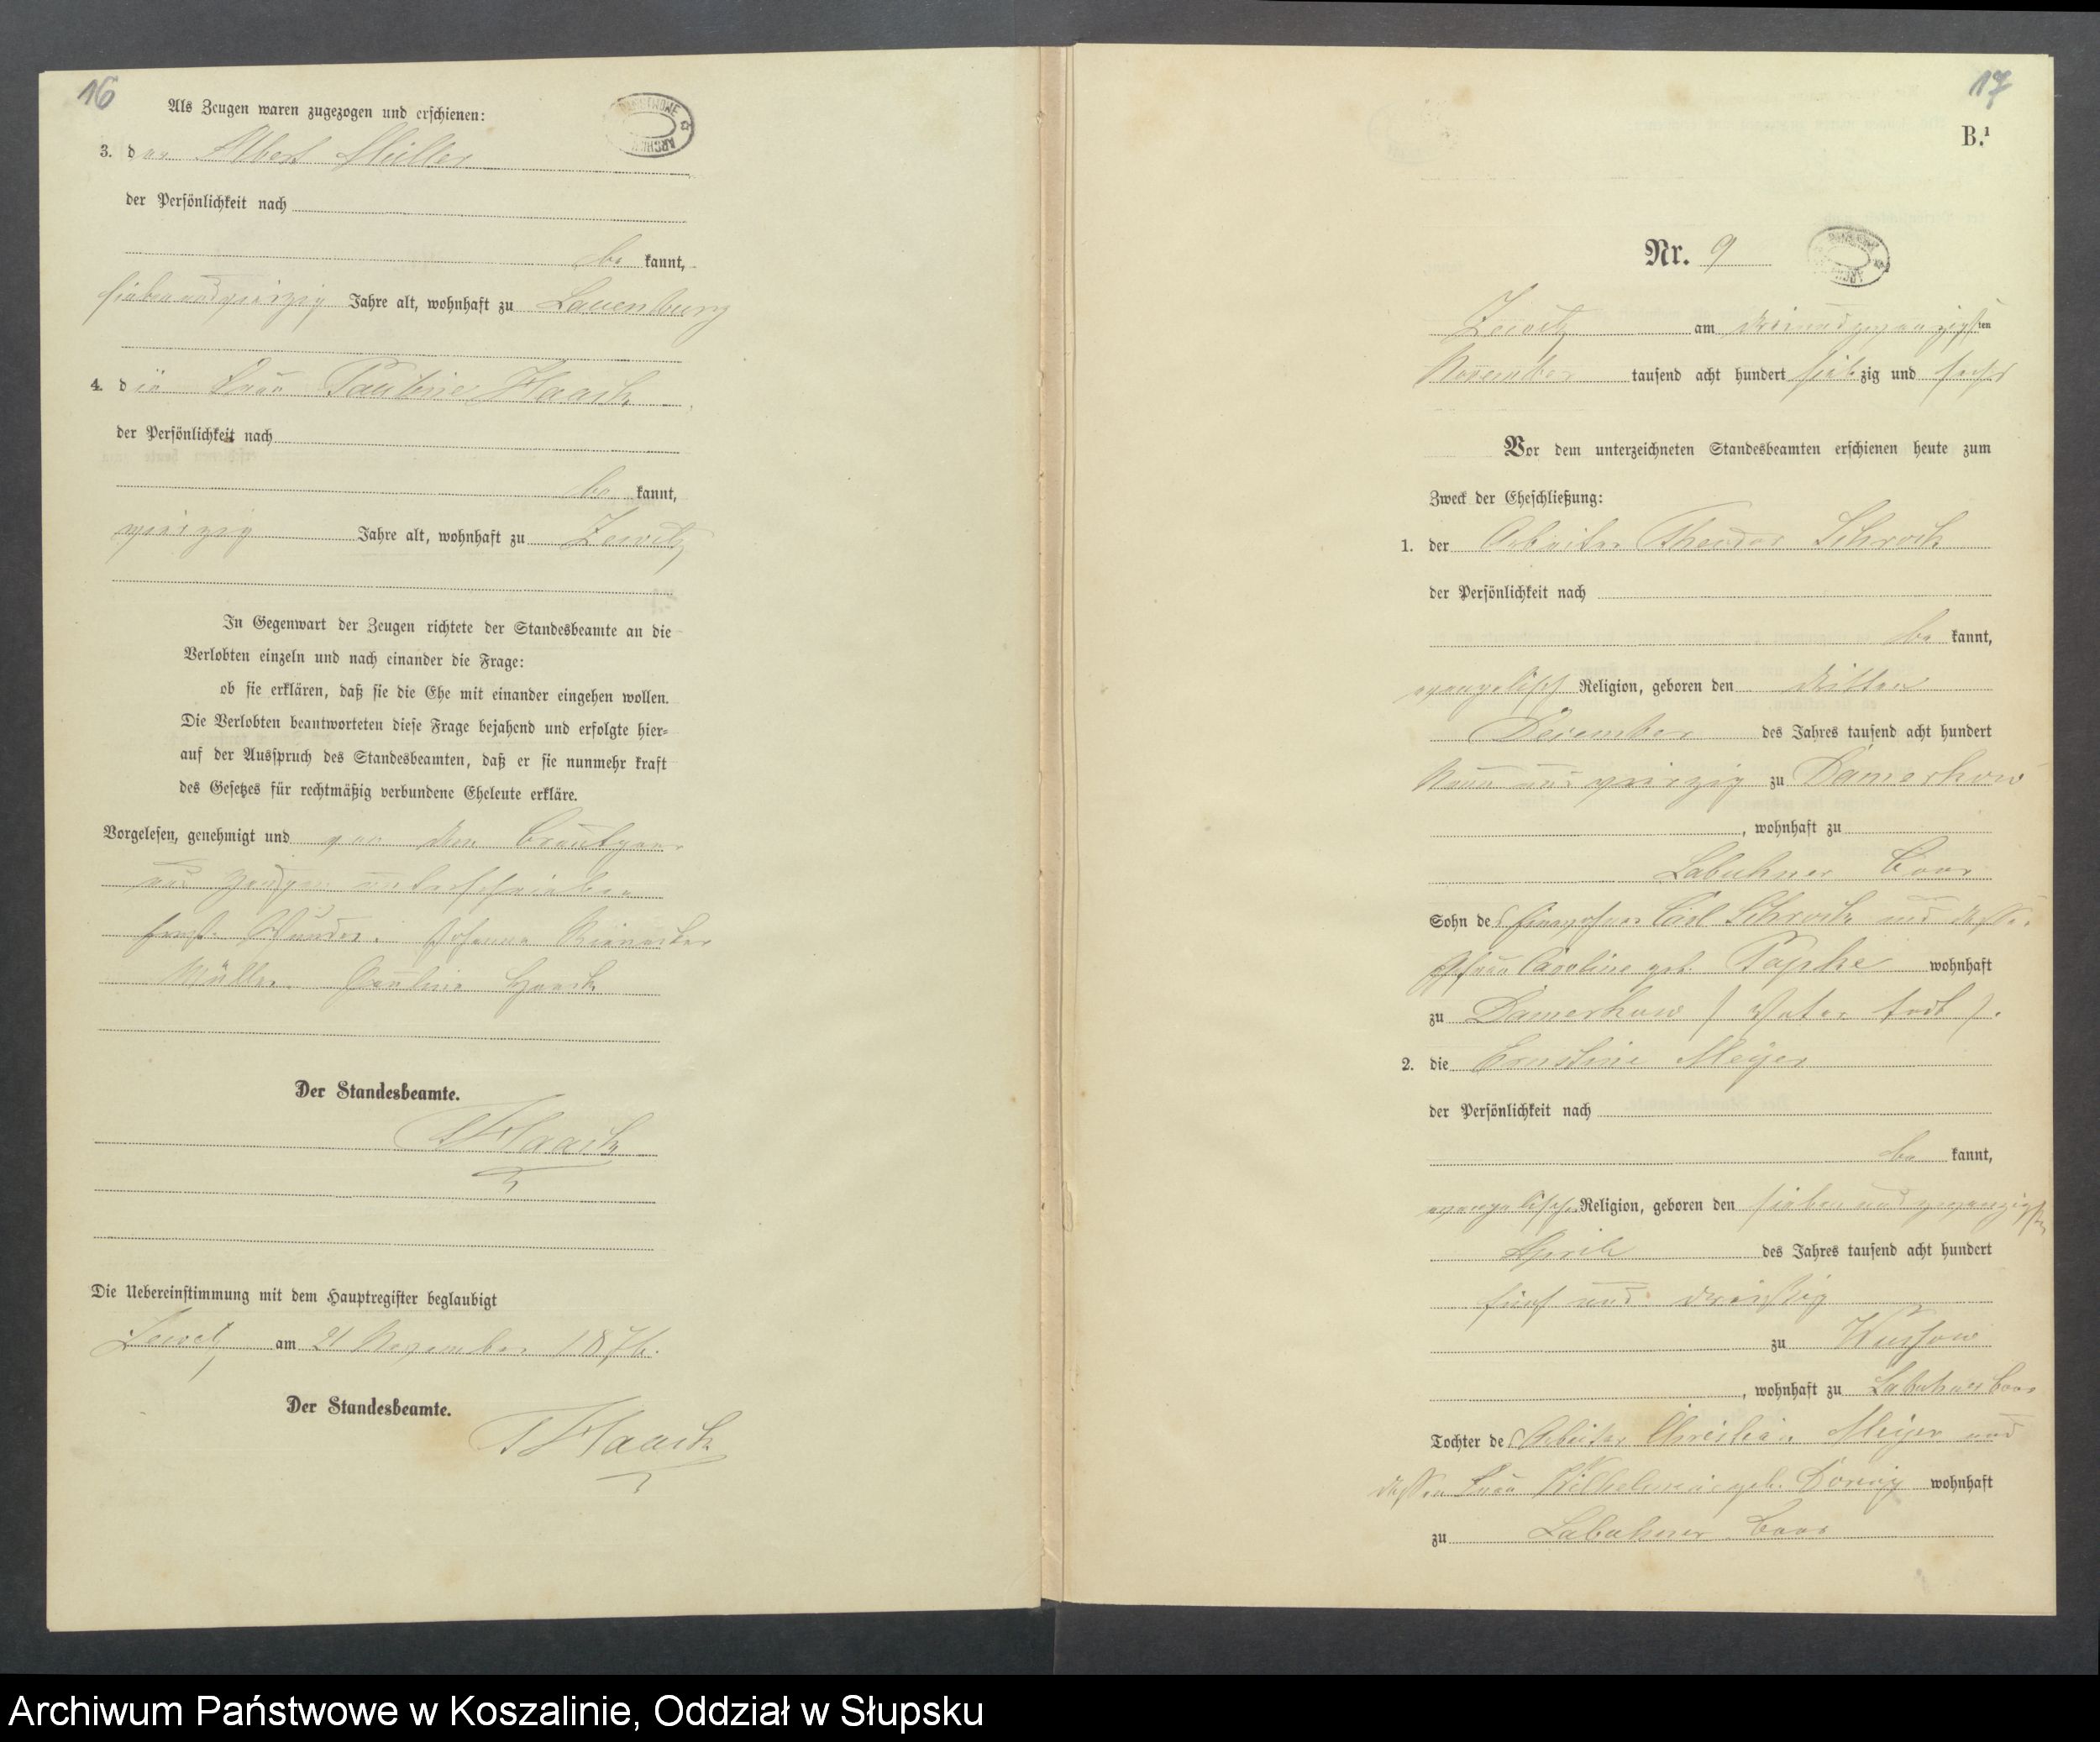 16
Als Zeugen waren zugezogen und erschienen:
3. der Albert Müller
der Persönlichkeit nach
be kannt,
siebenundvierzig Jahre alt, wohnhaft zu Lauenburg
4. die Frau Pauline Haack
der Persönlichkeit nach
be kannt,
vierzig Jahre alt, wohnhaft zu Zewitz
In Gegenwart der Zeugen richtete der Standesbeamte an die
Verlobten einzeln und nach einander die Frage:
ob sie erklären, daß sie die Ehe mit einander eingehen wollen.
Die Verlobten beantworteten diese Frage bejahend und erfolgte hier-
auf der Ausspruch des Standesbeamten, daß er sie nunmehr kraft
des Gesetzes für rechtmäßig verbundene Eheleute erkläre.
Vorgelesen, genehmigt und von den
und Zeugen unterschrieben
Johanna
Müller. Pauline Haack
Der Standesbeamte.
Haack
Die Uebereinstimmung mit dem Hauptregister beglaubigt
Zewitz am 21 November 1876.
Der Standesbeamte.
Haack
17
B.¹
Nr. 9
Zewitz am dreiundzwanzigsten
November tausend acht hundert siebzig und sechs
Vor dem unterzeichneten Standesbeamten erschienen heute zum
Zweck der Eheschließung:
1. der Arbeiter Theodor Schrock
der Persönlichkeit nach
be kannt,
evangelisch Religion, geboren den dritten
December des Jahres tausend acht hundert
Neun und vierzig zu Damerkow
, wohnhaft zu
Labuhner
Sohn des Carl Schrock und dessen
Ehefrau Caroline geb. Papke wohnhaft
zu Damerkow (Vater todt).
2. die Ernstine Meyer
der Persönlichkeit nach
be kannt,
evangelisch Religion, geboren den sieben und zwanzigsten
April des Jahres tausend acht hundert
fünf und dreißig
zu Wussow
, wohnhaft zu Labuhner
Tochter des Arbeiter Christian Meyer und
dessen Frau Wilhelmine geb. wohnhaft
zu Labuhner
Archiwum Państwowe w Koszalinie, Oddział w Słupsku